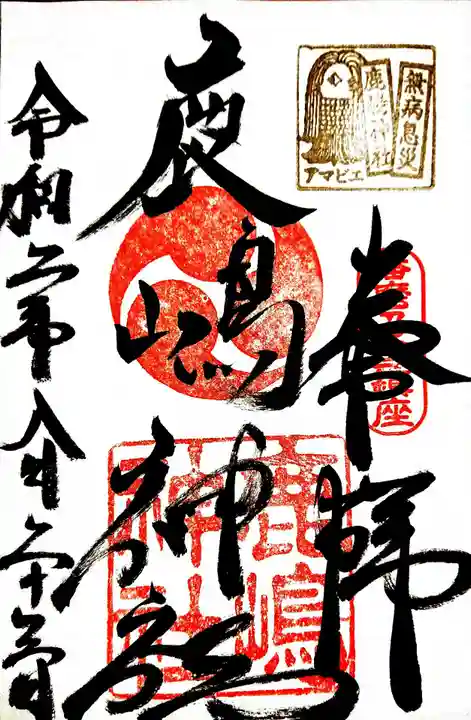 奉拝
鹿嶋神社
令和二年八月二十三日
無病息災
鹿嶋神社
アマビエ
鹿嶋
神社